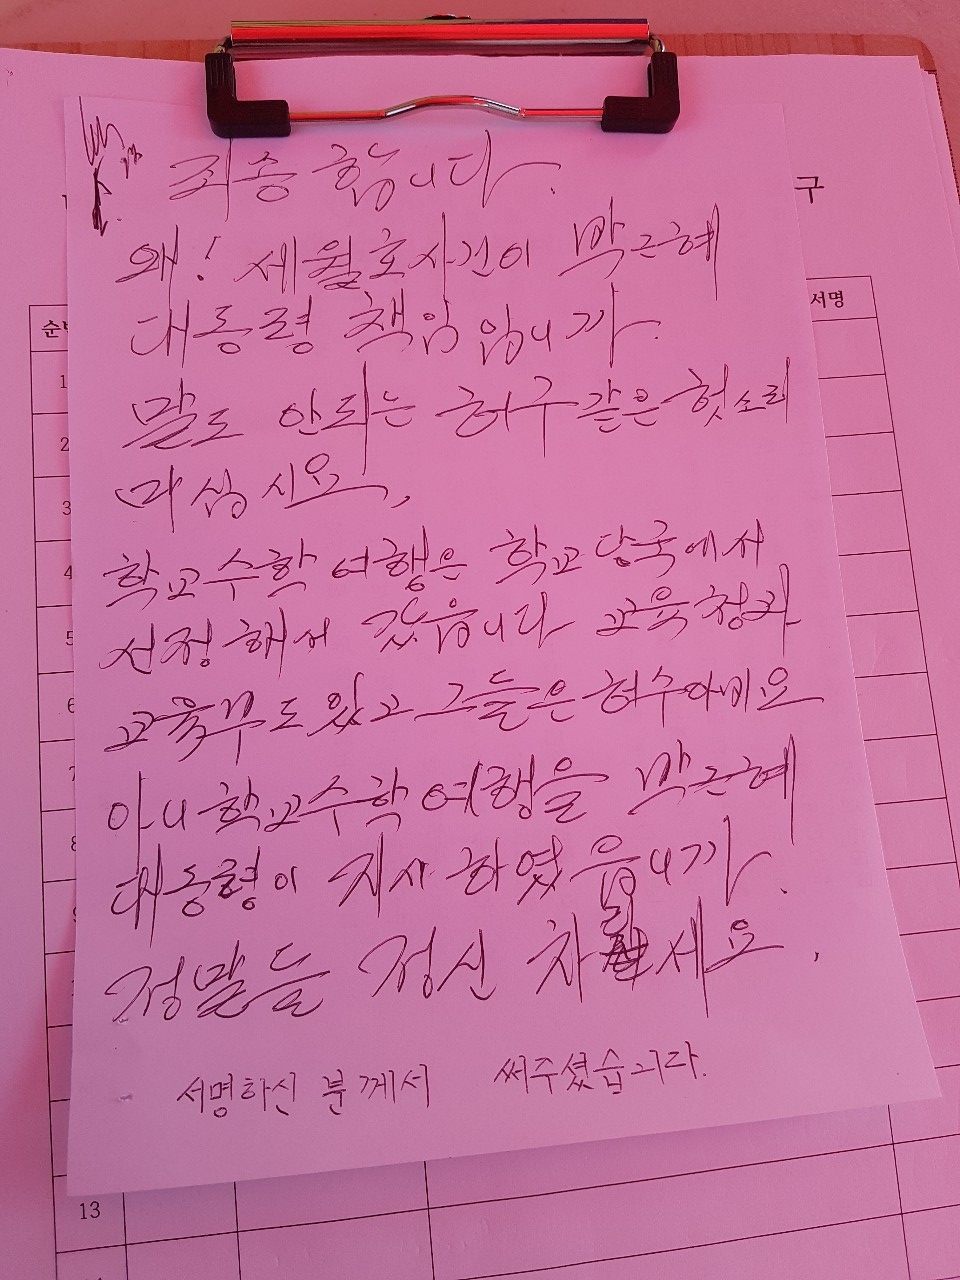 구
순번
서명
죄송합니다.
왜! 세월호사건이 박근혜
대통령 책임입니까.
말도 안되는 허구같은 헛소리
마십시요,
학교수학여행은 학교당국에서
선정해서 갔읍니다 교육청과
교육부도 있고 그들은 허수아비요
아니 학교수학여행을 박근혜
대통령이 지시하였읍니까.
정말들 정신 차리세요.
서명하신 분께서 써주셨습니다.
1
2
3
4
5
6
7
8
13